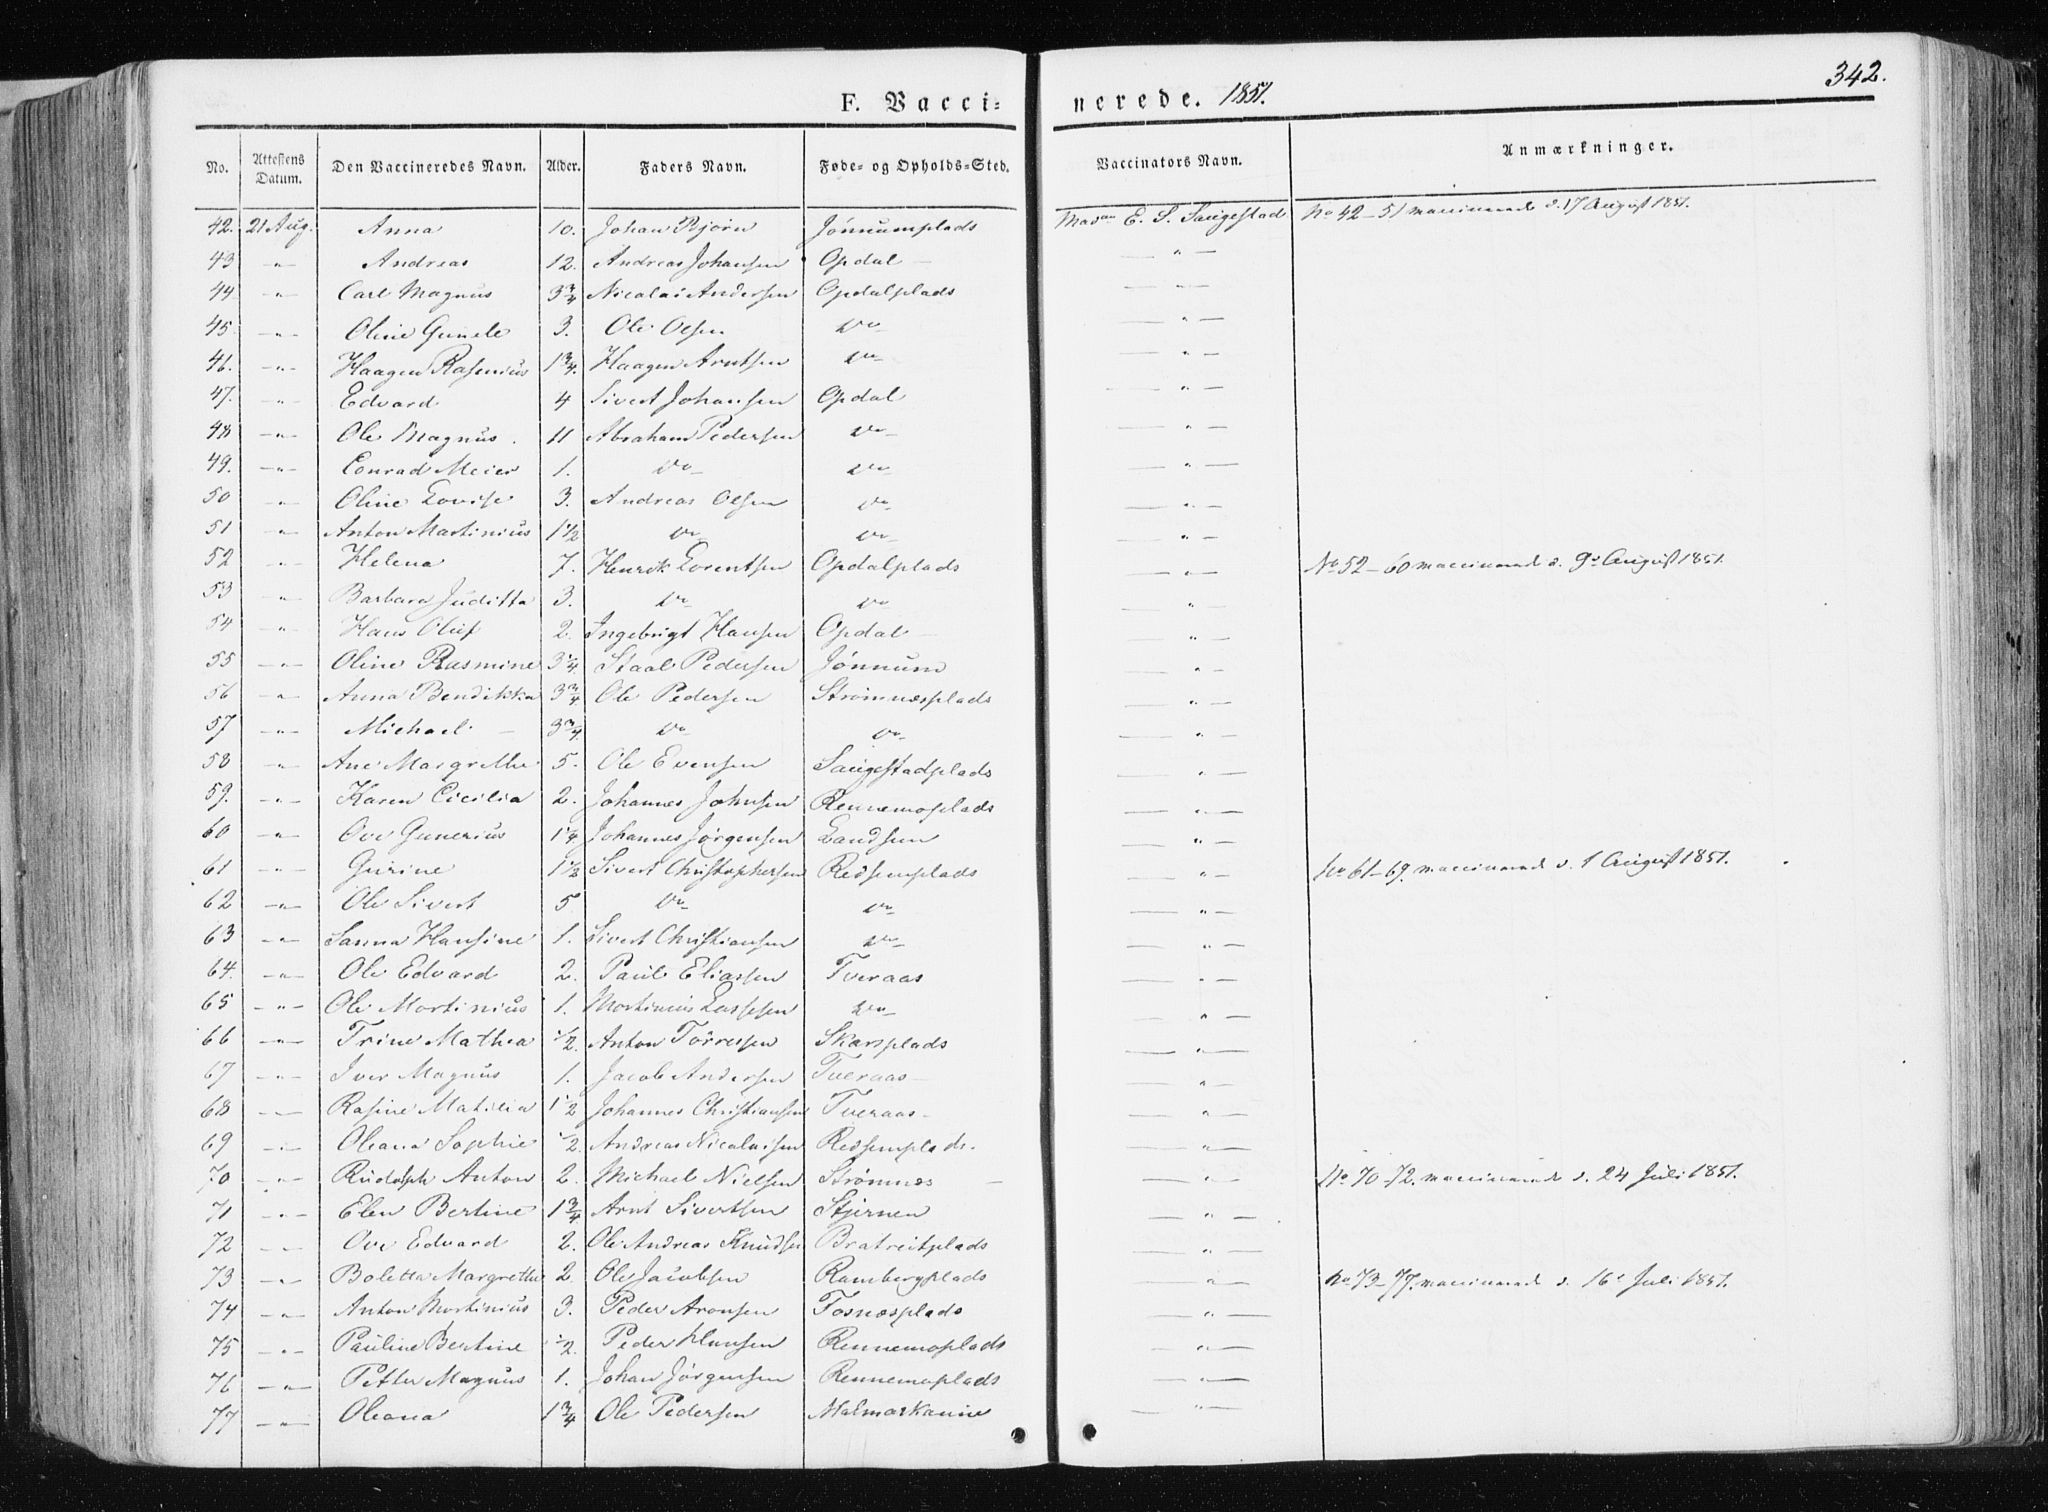 342.
F. Vaccinerede. 1851.
No. Attestens Datum. Den Vaccineredes Navn. Alder. Faders Navn. Føde- og Opholds-Sted. Vaccinators Navn. Anmærkninger.
42. 21 Aug. Anna 10. Johan Bjørn Jønnumplads E. S. Saugestad No 42-51 vaccinerede d. 17 August 1851.
43 -"- Andreas 12. Andreas Johansen Opdal — -"-
44 -"- Carl Magnus 3 3/4 Nicolai Andersen Opdalplads -"-
45. -"- Oline Gunele 3. Ole Olsen do -"-
46. -"- Haagen Rasenius 1 3/4. Haagen Arntsen do -"-
47. -"- Edvard 4 Sivert Johansen Opdal -"-
48 -"- Ole Magnus. 11 Abraham Pedersen do -"-
49. -"- Conrad Meier 1. do do -"-
50 -"- Oline Lovise 3. Andreas Olsen do -"-
51 -"- Anton Martinius 1 1/2 do do -"-
52 -"- Helena 7. Henrik Lorentsen Opdalplads -"- No 52-60 vaccinerede d. 9d August 1851.
53 -"- Barbara Juditta 3. do do -"-
54 -"- Hans Oluf 2. Ingebrigt Hansen Opdal — -"-
55 -"- Oline Rasmine 3 1/4 Staal Pedersen Jønnum -"-
56 -"- Anna Bendikka 3 3/4 Ole Pedersen Strømnesplads -"-
57 -"- Michael — 3 3/4. do do -"-
58 -"- Ane Margrethe 5. Ole Evensen Saugestadplads -"-
59. -"- Karen Cicilia 2. Johannes Johnsen Rennemoplads -"-
60 -"- Ove Gunerius 1 1/4 Johannes Jørgensen Landsem -"-
61 -"- Gurine 1 1/2 Sivert Christophersen Redsemplads -"- No 61-69. vaccinerede d. 1 August 1851.
62 -"- Ole Sivert 5 do do -"-
63 -"- Sanna Hansine 1. Sivert Christiansen do -"-
64. -"- Ole Edvard 2. Paul Eliassen Tveraas -"-
65 -"- Ole Mortinius 1. Mortinius Lassesen do -"-
66 -"- Trine Mathea 1/2. Anton Torressen Skarsplads -"-
67 -"- Iver Magnus 1. Jacob Andersen Tveraas — -"-
68 -"- Rasine Matilia 1 1/2 Johannes Christiansen Tveraas — -"-
69 -"- Oleana Sophie 1/2. Andreas Nicolaisen Redsemplads. -"-
70 -"- Rudolph Anton 2. Michael Nielsen Strømnes — -"- No 70-72. vaccinerede d. 24 Juli 1851.
71 -"- Elen Bertine 1 3/4 Arnt Sivertsen Stjernen -"-
72 -"- Ove Edvard 2. Ole Andreas Knudsen Bratreitplads -"-
73 -"- Boletta Margrethe 2. Ole Jacobsen Rambergplads -"- No 73-77. vaccinerede d. 16d Juli 1851.
74 -"- Anton Mortinius 3. Peder Aronsen Fosnesplads -"-
75 -"- Pauline Bertine 1/2. Peder Hansen Rennemoplads -"-
76 -"- Petter Magnus 1. Johan Jørgensen Rennemoplads -"-
77 -"- Oleana 1 3/4 Ole Pedersen -"-